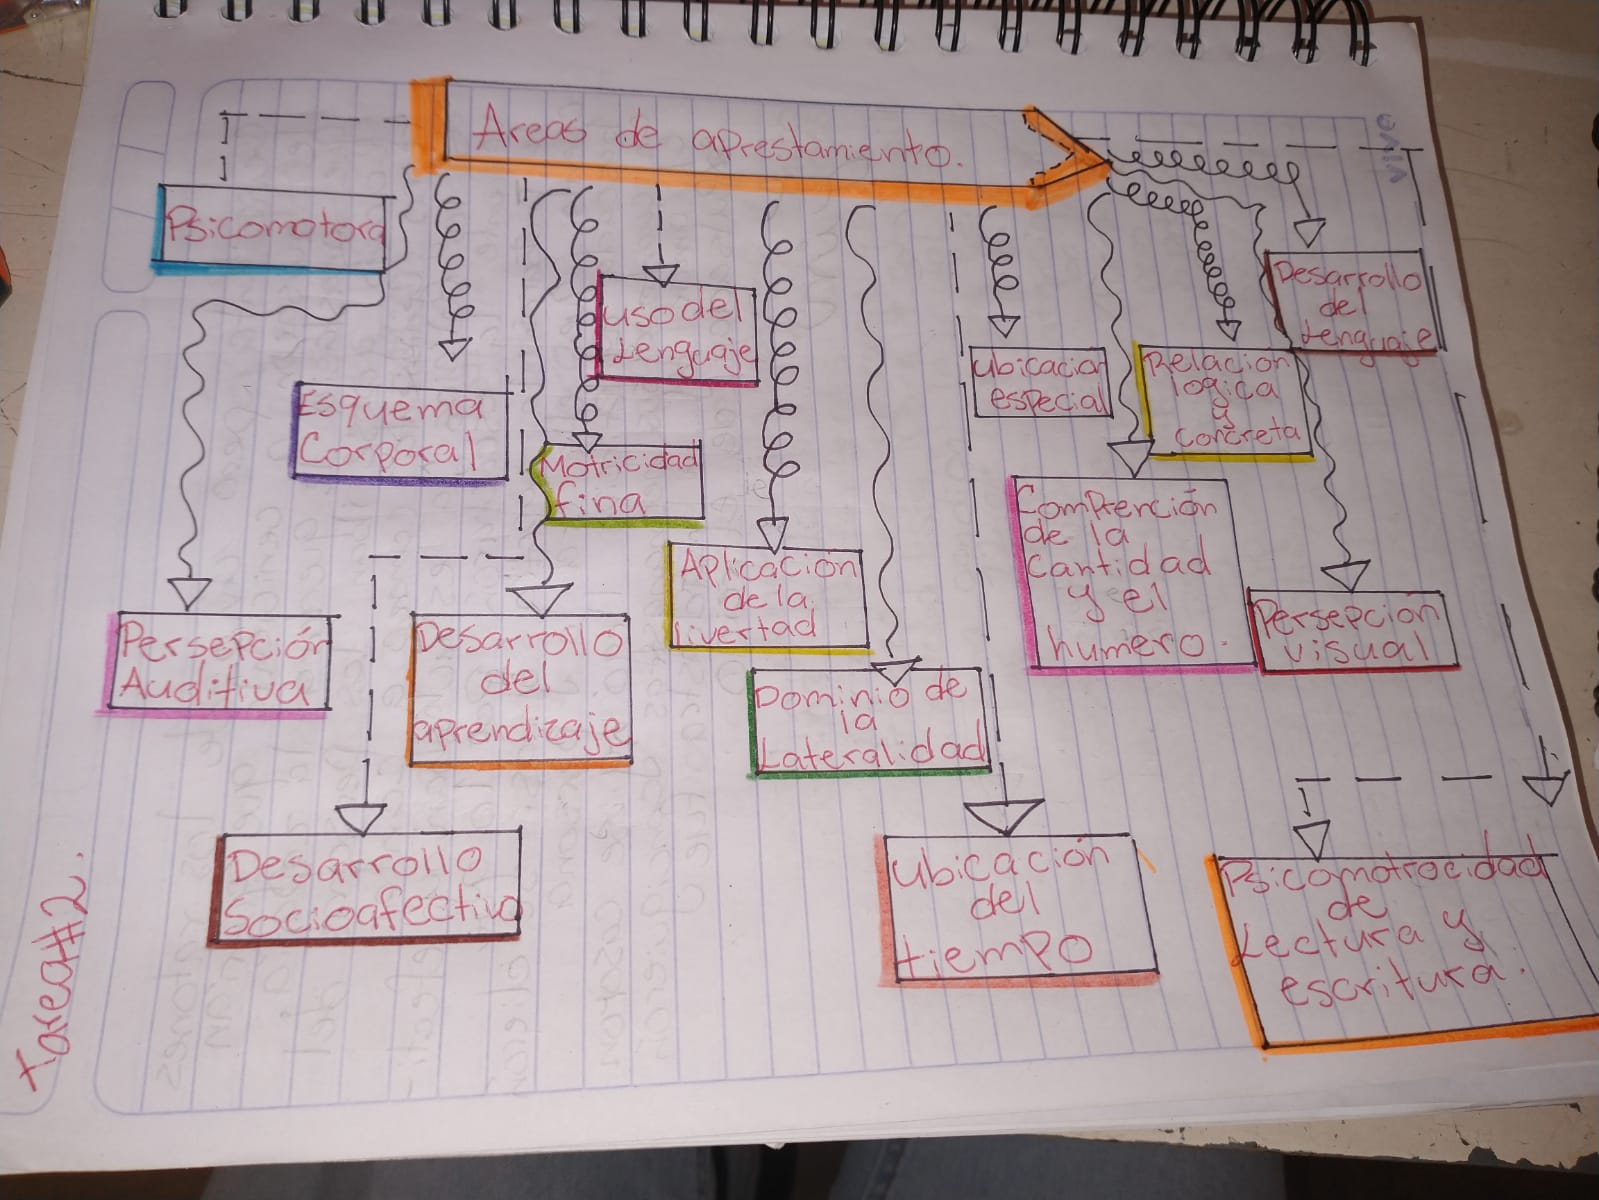 Areas de aprestamiento.
Psicomotora
Desarrollo
del
Lenguaje
uso del
Lenguaje
ubicación
especial
Relación
logica
y
concreta
Esquema
Corporal
Motricidad
fina
Comprención
de la
cantidad
y el
número.
Aplicación
de la
livertad
Persepción
Auditiva
Desarrollo
del
aprendizaje
Persepción
visual
Dominio de
la
Lateralidad
Desarrollo
Socioafectivo
ubicación
del
tiempo
Psicomotrocidad
de
Lectura y
escritura.
Tarea#2.